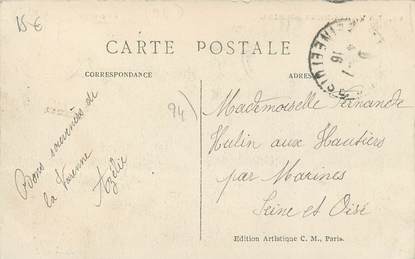 15€
CARTE POSTALE
CORRESPONDANCE
ADRES
94)
Bons souvenirs de
la Varenne
Azélie
Mademoiselle Fernande
Hulin aux Hautiers
par Marines
Seine et Oise
Edition Artistique C. M., Paris.